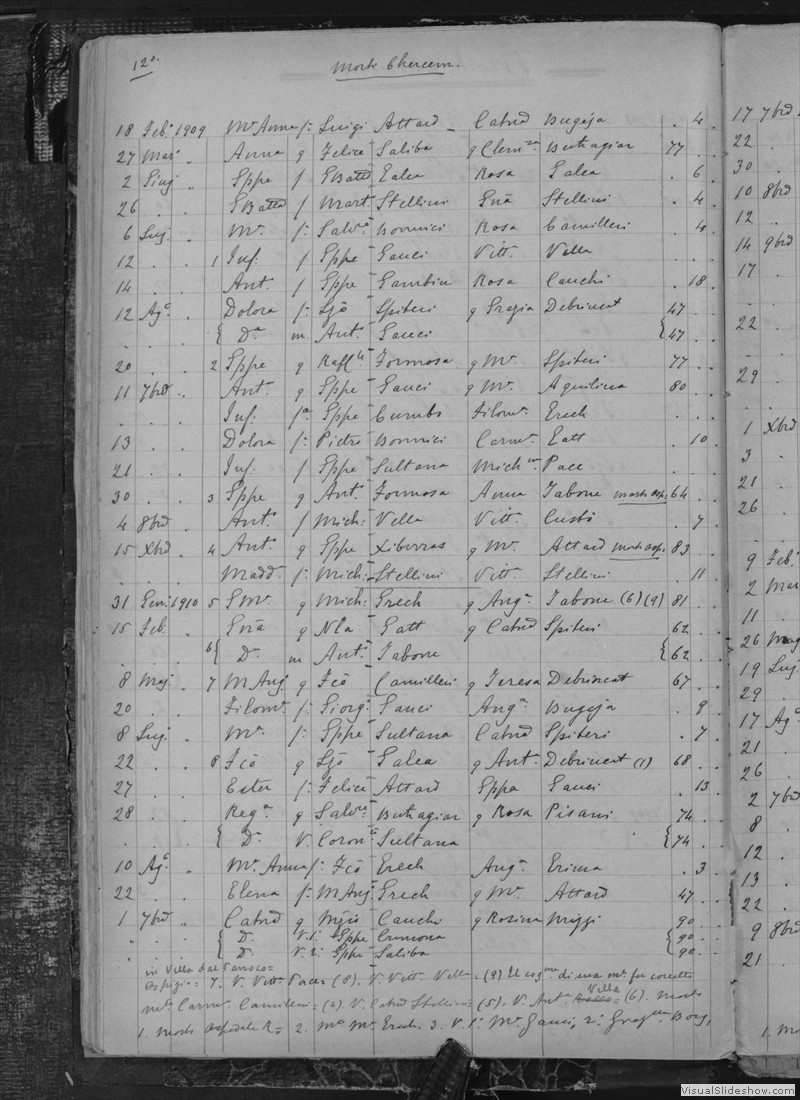 120.
Morti Chercem.
18 Feb. 1909 Ma Anna f. Luigi Attard Catnd Bugeja 4
27 Mar. Anna q Felice Saliba q Clem Buttagiar 77
2 Giug Gppe f GBatta Galea Rosa Galea 6
26 GBatta f Mart. Stellini Gna Stellini 4
6 Lug. Ma f. Salv. Bonnici Rosa Camilleri 4
12 1 Inf. f Gppe Gauci Vitt. Vella
14 Ant. f Gppe Gambin Rosa Cauchi 18
12 Ago. Dolora f. Gio Spiteri q Grazia Debrincat 47
{ Da. m Ant. Gauci {47
20 2 Gppe q Raff. Formosa q Ma. Spiteri 77
11 7bre Ant. q Gppe Gauci q Ma. Aquilina 80
Inf. fa Gppe Cumbo Filom. Grech
13 Dolora f. Pietro Bonnici Carm. Gatt 10
21 Inf. f Gppe Sultana Mich. Pace
30 3 Gppe q Ant. Formosa Anna Tabone morto osp. 64
4 8bre Ant. f Mich. Vella Vitt. Custò 7
15 Xbre 4 Ant. q Gppe Xiberras q Ma. Attard morto osp. 83
Madd. f. Mich. Stellini Vitt. Stellini 11
31 Gen. 1910 5 GMa. q Mich. Grech q Ang. Tabone (6) (9) 81
15 Feb. Gna q Nla Gatt q Catnd Spiteri 62
6 { Da. m Ant. Tabone {62
8 Mag. 7 M Ang. q Fco Camilleri q Teresa Debrincat 67
20 Filom. f. Giorg. Gauci Ang. Bugeja 9
8 Lug. Ma. f. Gppe Sultana Catnd Spiteri 7
22 8 Fco q Gio Galea q Ant. Debrincat (1) 68
27 Ester f. Felice Attard Gppa Gauci 13
28 Rega q Salv. Buttagiar q Rosa Pisani 74
{ Da. V. Coron. Sultana {74
10 Ago. Ma Anna f. Fco Grech Ang. Grima 3
22 Elena f. M Ang. Grech q Ma. Attard 47
1 7bre Catnd q Cauchi q Rosina Mizzi 90
{ D. V. 1. Gppe Cremona {90
{ D. V. 2. Gppe Saliba 90
in Villa dal Parroco
7. V. Vitt. Pace (8). V. Vitt. Vella (9) Il cogme. di sua me. fu corretto
me. Carm. Camilleri (4). V. Catnd Stellini (5). V. Ant. Vella (6). morto
1. morto Ospedale 2. Ma. Grech. 3. V. 1. Ma. Gauci, 2. Borg,
17 7bre
22
30
10 8bre
12
14 9bre
17
22
29
1 Xbre
3
21
26
9 Feb.
2 Mar
11
26 Mag
19 Lug.
29
17 Ago
21
26
2 7bre
8
12
13
22
9 8bre
21
VisualSlideshow.com